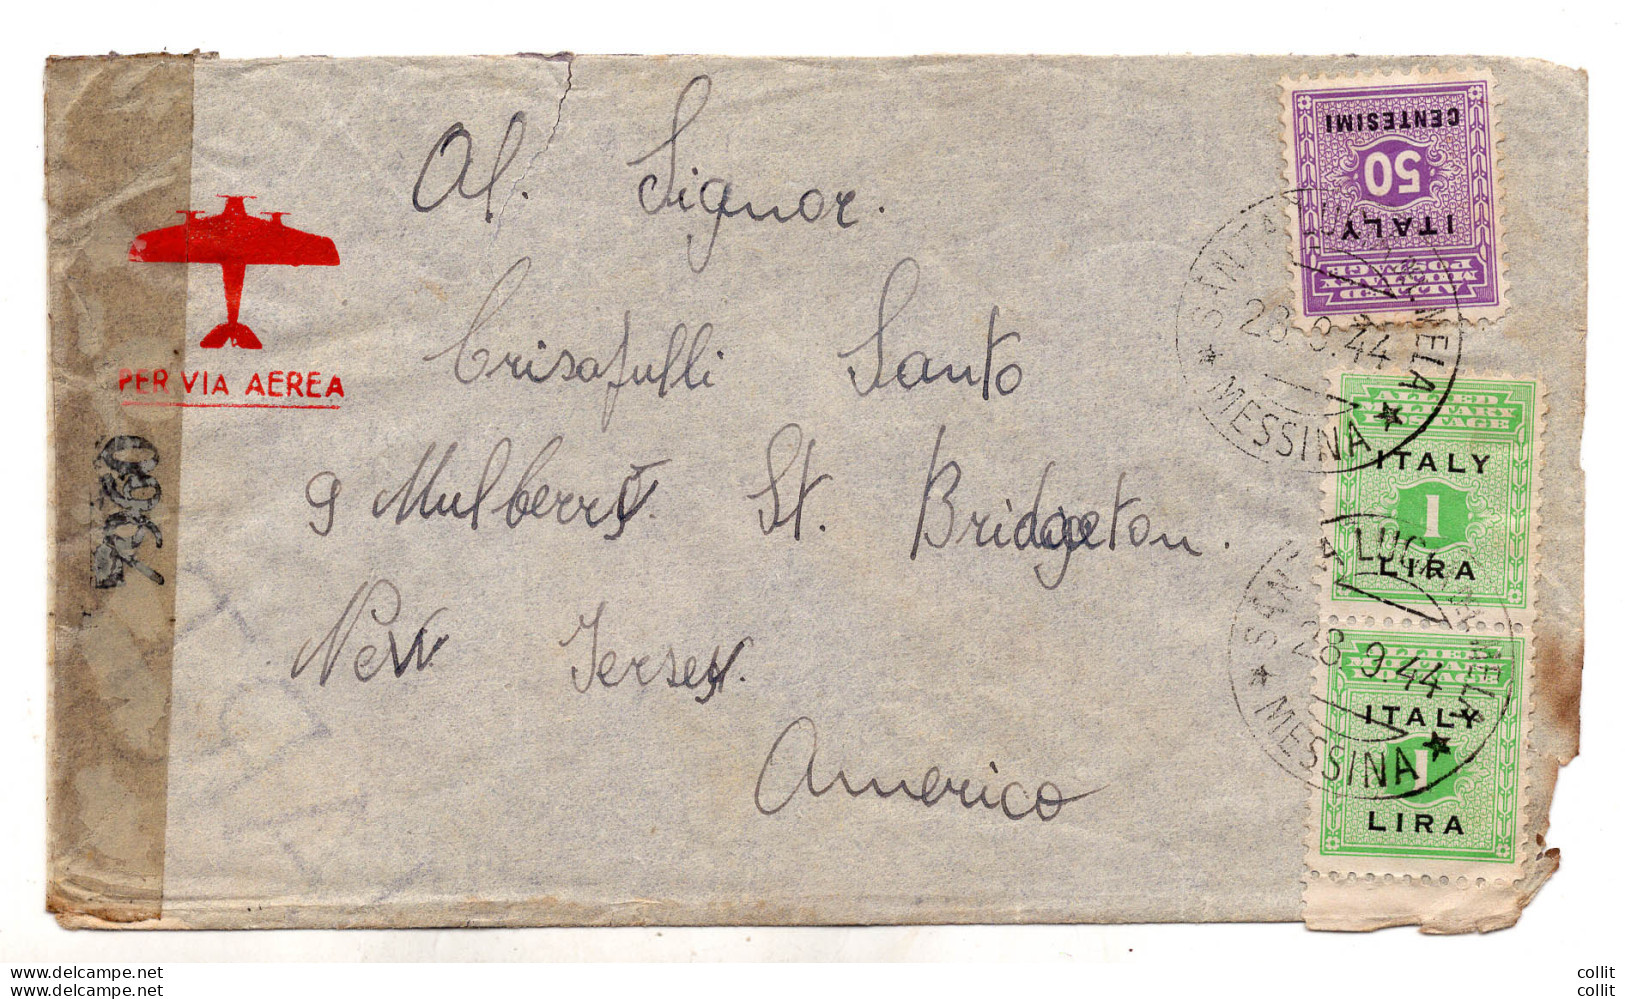 Al. Signor.
Crisafulli Santo
9 Mulberry. St. Bridgeton.
New. Jersey.
America
PER VIA AEREA
ALLIED MILITARY POSTAGE
ITALY
50
CENTESIMI
SANTA LUCIA DEL MELA
28.9.44
★ MESSINA ★
ALLIED MILITARY POSTAGE
ITALY
1
LIRA
SANTA LUCIA DEL MELA
28.9.44
★ MESSINA ★
ALLIED MILITARY POSTAGE
ITALY
1
LIRA
www.delcampe.net
www.delcampe.net
collit
collit